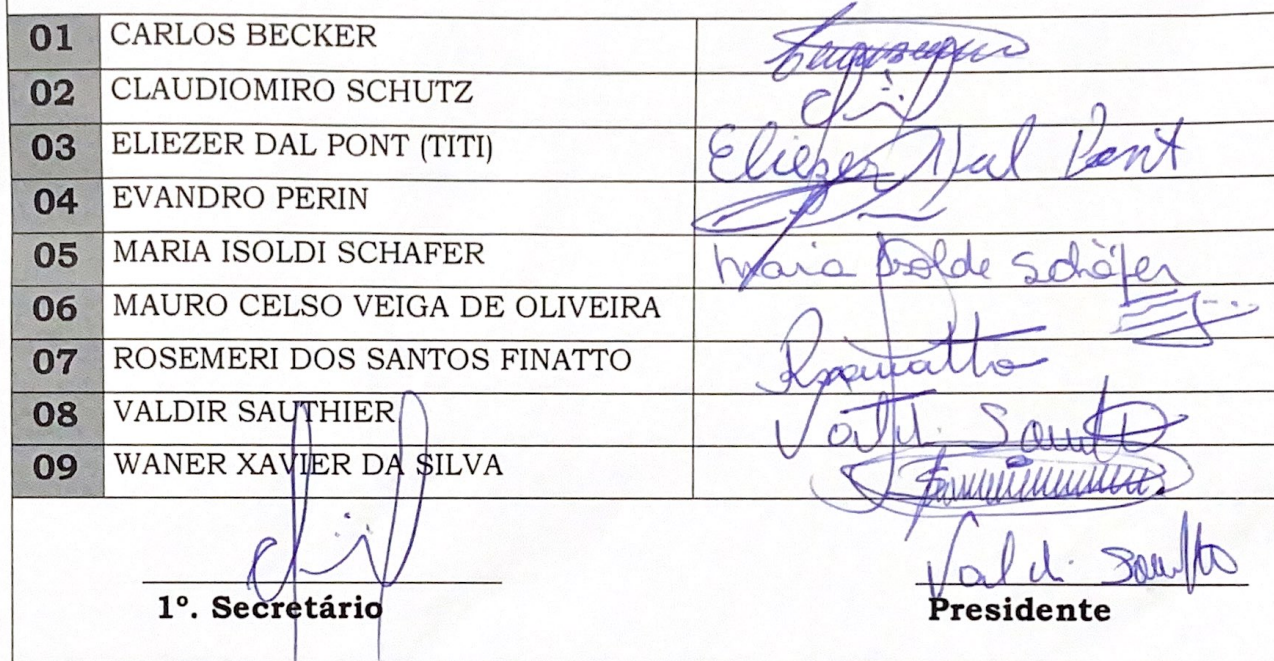 01 CARLOS BECKER
02 CLAUDIOMIRO SCHUTZ
03 ELIEZER DAL PONT (TITI) Eliezer Dal Pont
04 EVANDRO PERIN
05 MARIA ISOLDI SCHAFER Maria Isolde Schäfer
06 MAURO CELSO VEIGA DE OLIVEIRA
07 ROSEMERI DOS SANTOS FINATTO
08 VALDIR SAUTHIER
09 WANER XAVIER DA SILVA
1º. Secretário Presidente